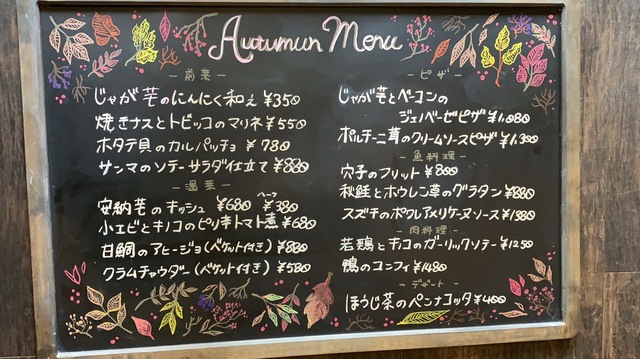 Autumun Menu
- 前菜 -
じゃが芋のにんにく和え ¥350
焼きナスとトビッコのマリネ ¥550
ホタテ貝のカルパッチョ ¥780
サンマのソテーサラダ仕立て ¥880
- 温菜 -
安納芋のキッシュ ¥680 ハーフ ¥380
小エビとキノコのピリ辛トマト煮 ¥680
甘鯛のアヒージョ(バゲット付き) ¥880
クラムチャウダー(バゲット付き) ¥580
- ピザ -
じゃが芋とベーコンの
ジェノベーゼピザ ¥1,080
ポルチーニ茸のクリームソースピザ ¥1,300
- 魚料理 -
穴子のフリット ¥800
秋鮭とホウレン草のグラタン ¥880
スズキのポワレアメリケーヌソース ¥1380
- 肉料理 -
若鶏とキノコのガーリックソテー ¥1250
鴨のコンフィ ¥1480
- デザート -
ほうじ茶のパンナコッタ ¥400